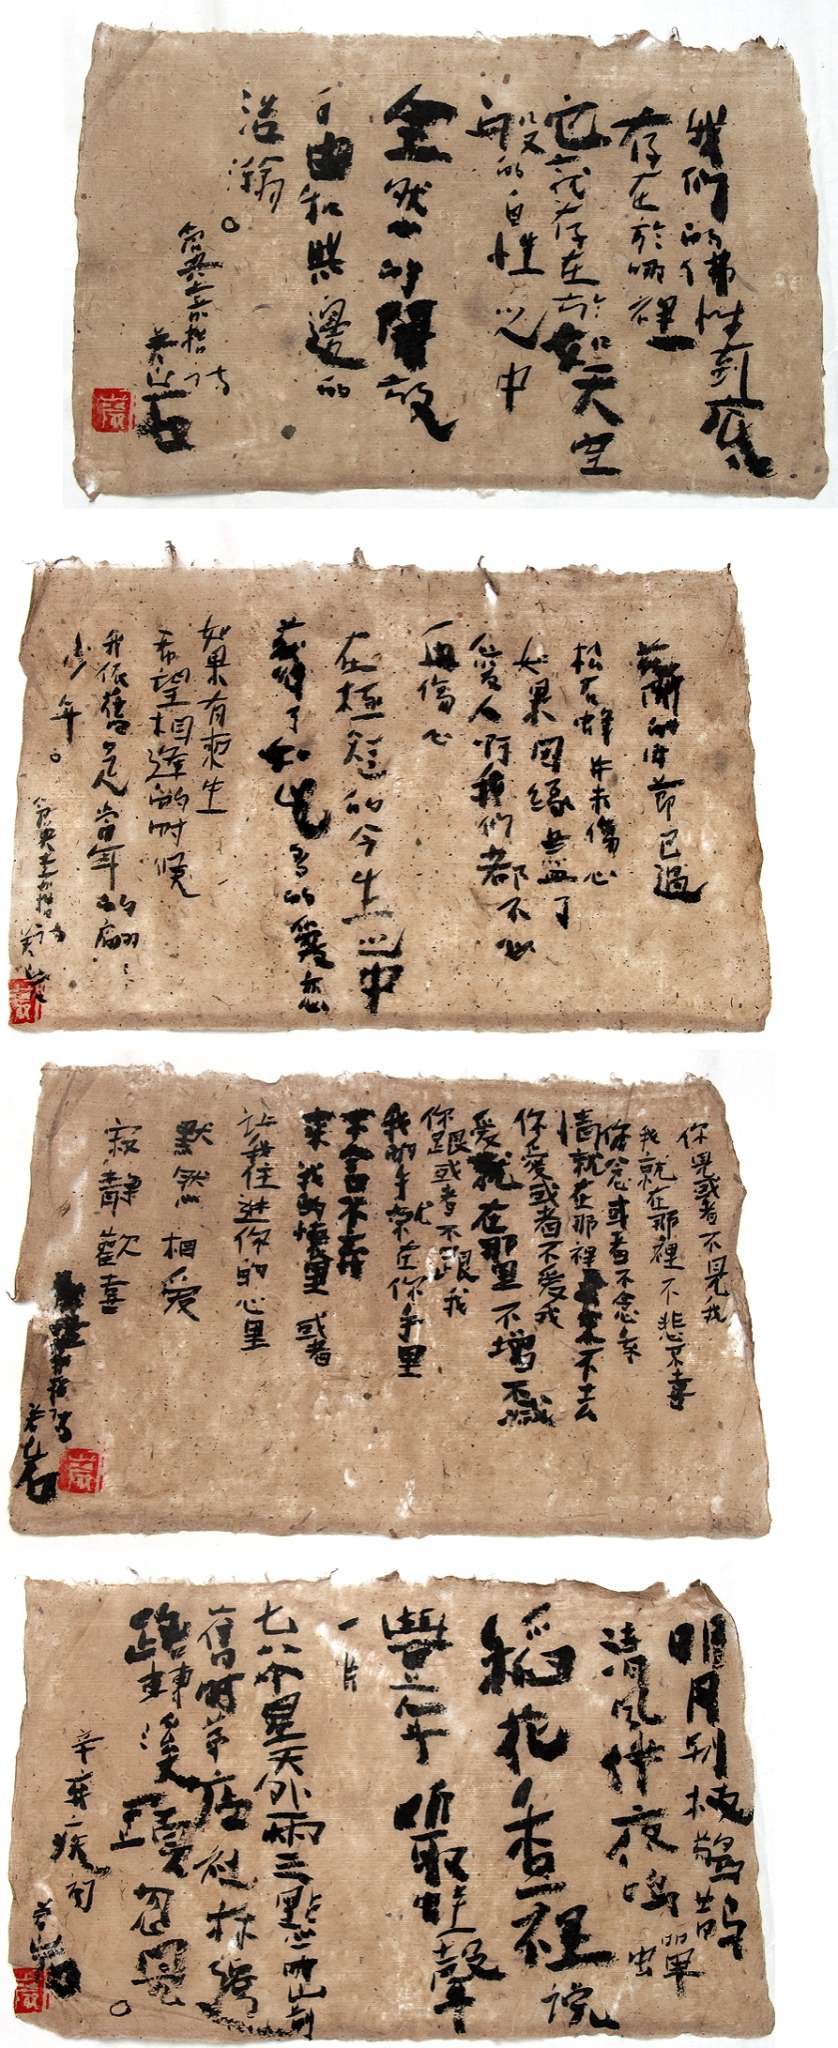 我們的佛性到底
存在於哪裡
它就存在於如天空
一般的自性之中
全然的開放
自由和無邊的
浩瀚。
倉央嘉措詩
花開的時節已過
松石蜂并未傷心
如果因緣盡了
愛人啊我們都不必
再傷心
在極短的今生之中
得了如此多的愛戀
如果有來生
希望相逢的時候
我依舊是當年的翩〻
少年。
倉央嘉措詩
你見或者不見我
我就在那裡不悲不喜
你念或者不念我
情就在那裡不來不去
你愛或者不愛我
愛就在那里不增不減
你跟或者不跟我
我的手就在你手里
不舍不棄
來我的懷里或者
讓我住進你的心里
默然相愛
寂靜歡喜
倉央嘉措詩
明月別枝驚鵲
清風伴夜鳴蟬
稻花香裡說
豐年听取蛙聲
一片
七八个星天外兩三點雨山前
舊時茅店社林邊
路轉溪頭忽見
辛弃疾句